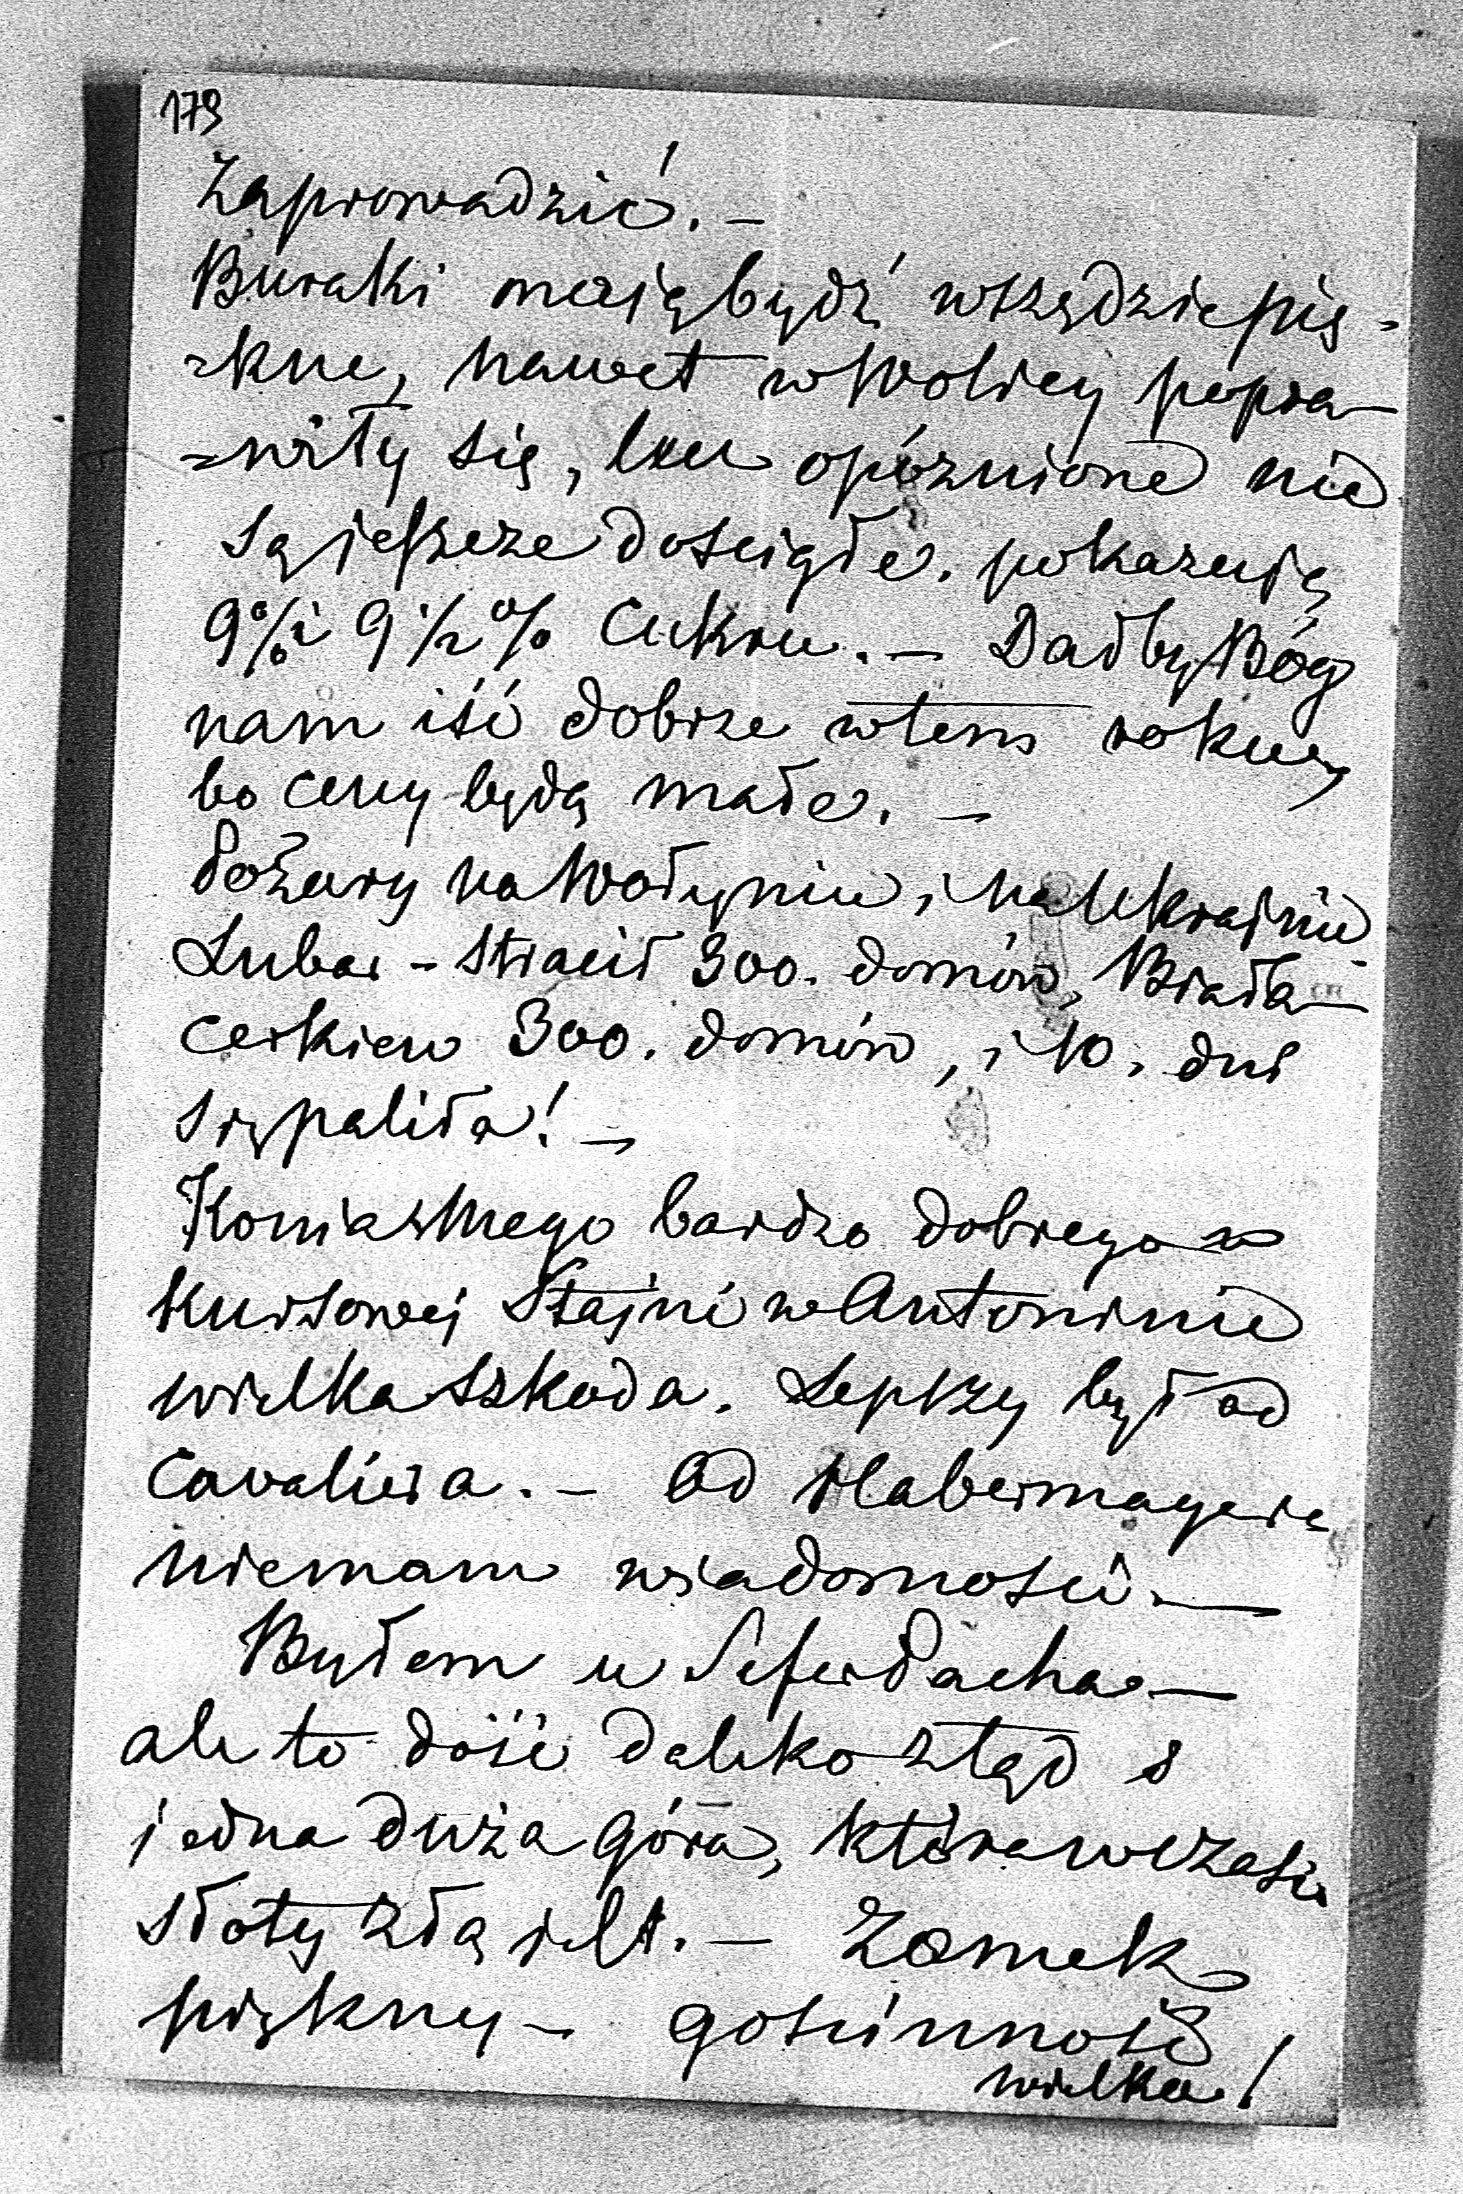 179
Zaprowadzić. —
Buraki mają bydź wszędzie pię-
-kne, nawet w Wolicy popra-
=wiły się, lecz opóźnione nie
są jeszcze dościgłe. pokazują
9% i 9 1/2 % Cukru. — Dałby Bóg
nam iść dobrze w tem roku,
bo ceny będą małe. —
Pożary na Wołyniu i na Ukrainie
Lubar - stracił 300. domów, Biała
cerkiew 300. domów, i 10. dni
się paliła! —
Koniaszego bardzo dobrego w
Kursowej Stajni w Antoninie
wielka szkoda. Lepszy był od
Cavaliera. — Od Habermayera
niemam wiadomości. —
Byłem u Seher Pacha —
ale to dość daleko ztąd i
jedna duża góra, która w czasie
słoty złą jest. — Zamek
piękny — gościnność
wielka!